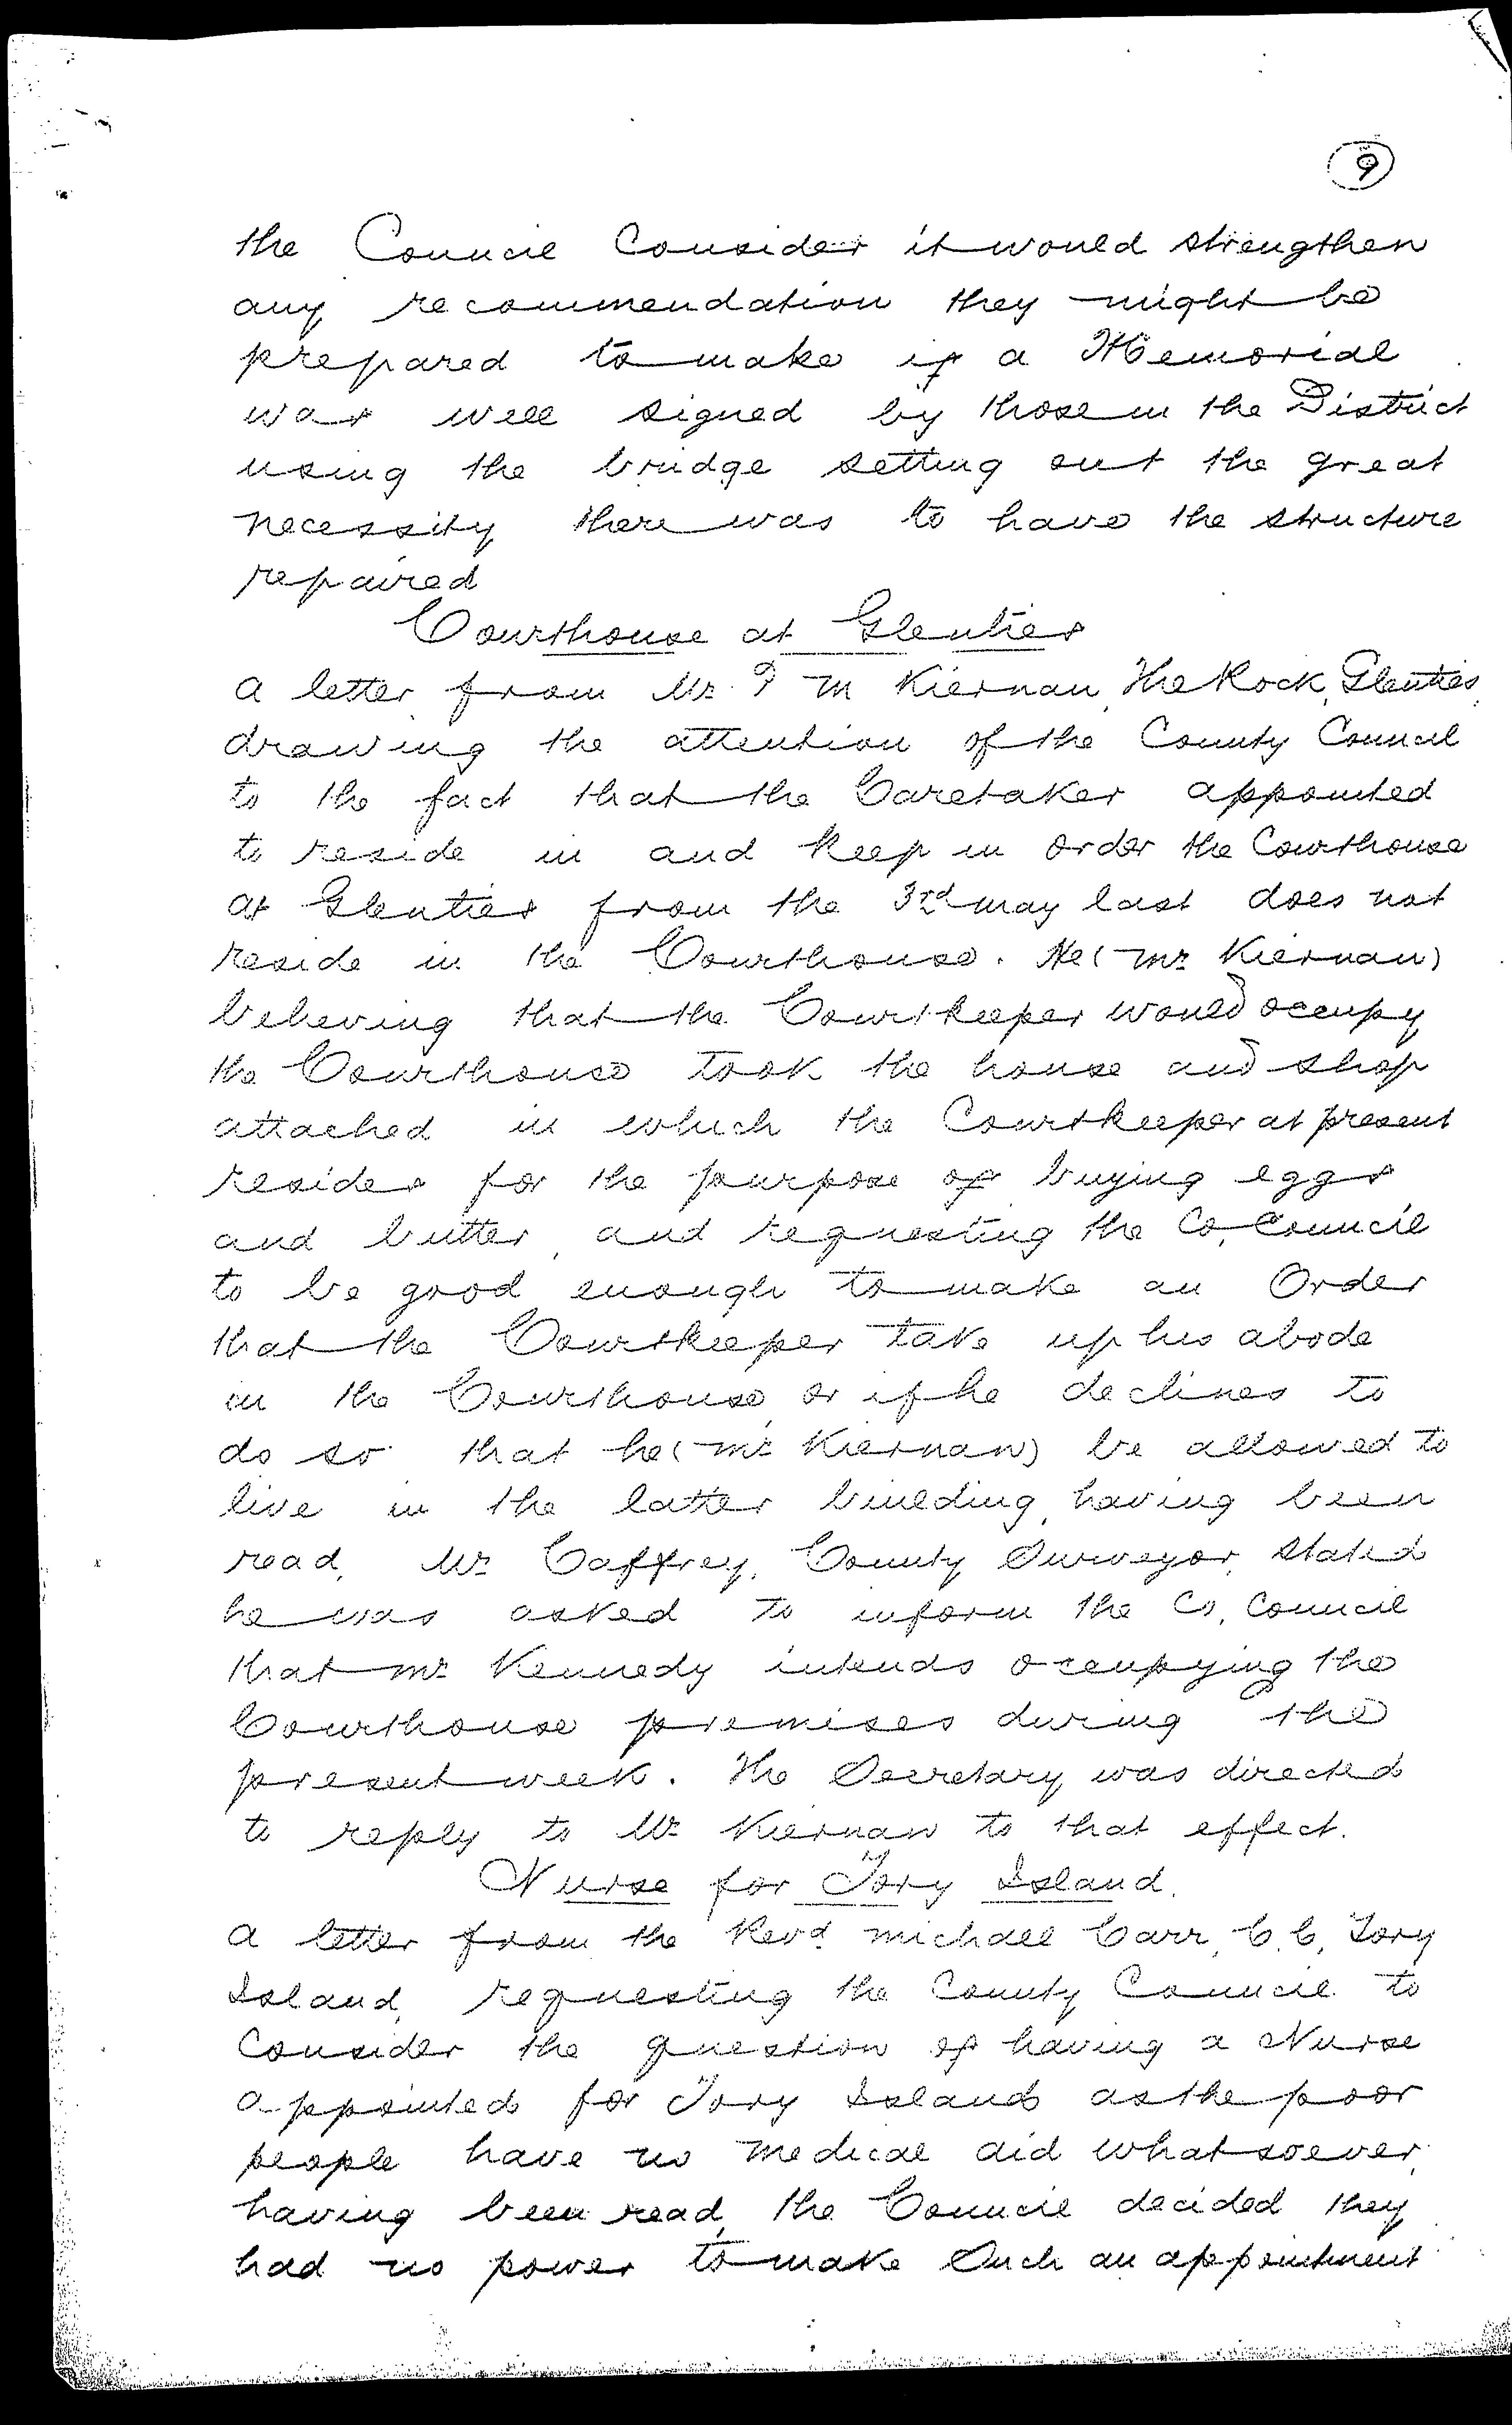 9
the Council Consider it would strengthen
any recommendation they might be
prepared to make if a Memorial
was well signed by those in the District
using the bridge setting out the great
necessity there was to have the structure
repaired
Courthouse at Glenties
A letter from Mr. P M Kiernan, The Rock, Glenties,
drawing the attention of the County Council
to the fact that the Caretaker appointed
to reside in and keep in order the Courthouse
at Glenties from the 3rd May last does not
reside in the Courthouse. He (Mr Kiernan)
believing that the Courtkeeper would occupy
the Courthouse took the house and shop
attached in which the Courtkeeper at present
resides for the purpose of buying eggs
and butter, and requesting the Co. Council
to be good enough to make an Order
that the Courtkeeper take up his abode
in the Courthouse, or if he declines to
do so that he (Mr Kiernan) be allowed to
live in the latter building, having been
read, Mr Caffrey, County Surveyor, stated
he was asked to inform the Co. Council
that Mr Kennedy intends occupying the
Courthouse premises during the
present week. The Secretary was directed
to reply to Mr Kiernan to that effect.
Nurse for Tory Island.
A letter from the Revd. Michael Carr, C.C, Tory
Island, requesting the County Council to
Consider the question of having a Nurse
appointed for Tory Island as the poor
people have no medical aid whatsoever,
having been read, the Council decided they
had no power to make Such an appointment